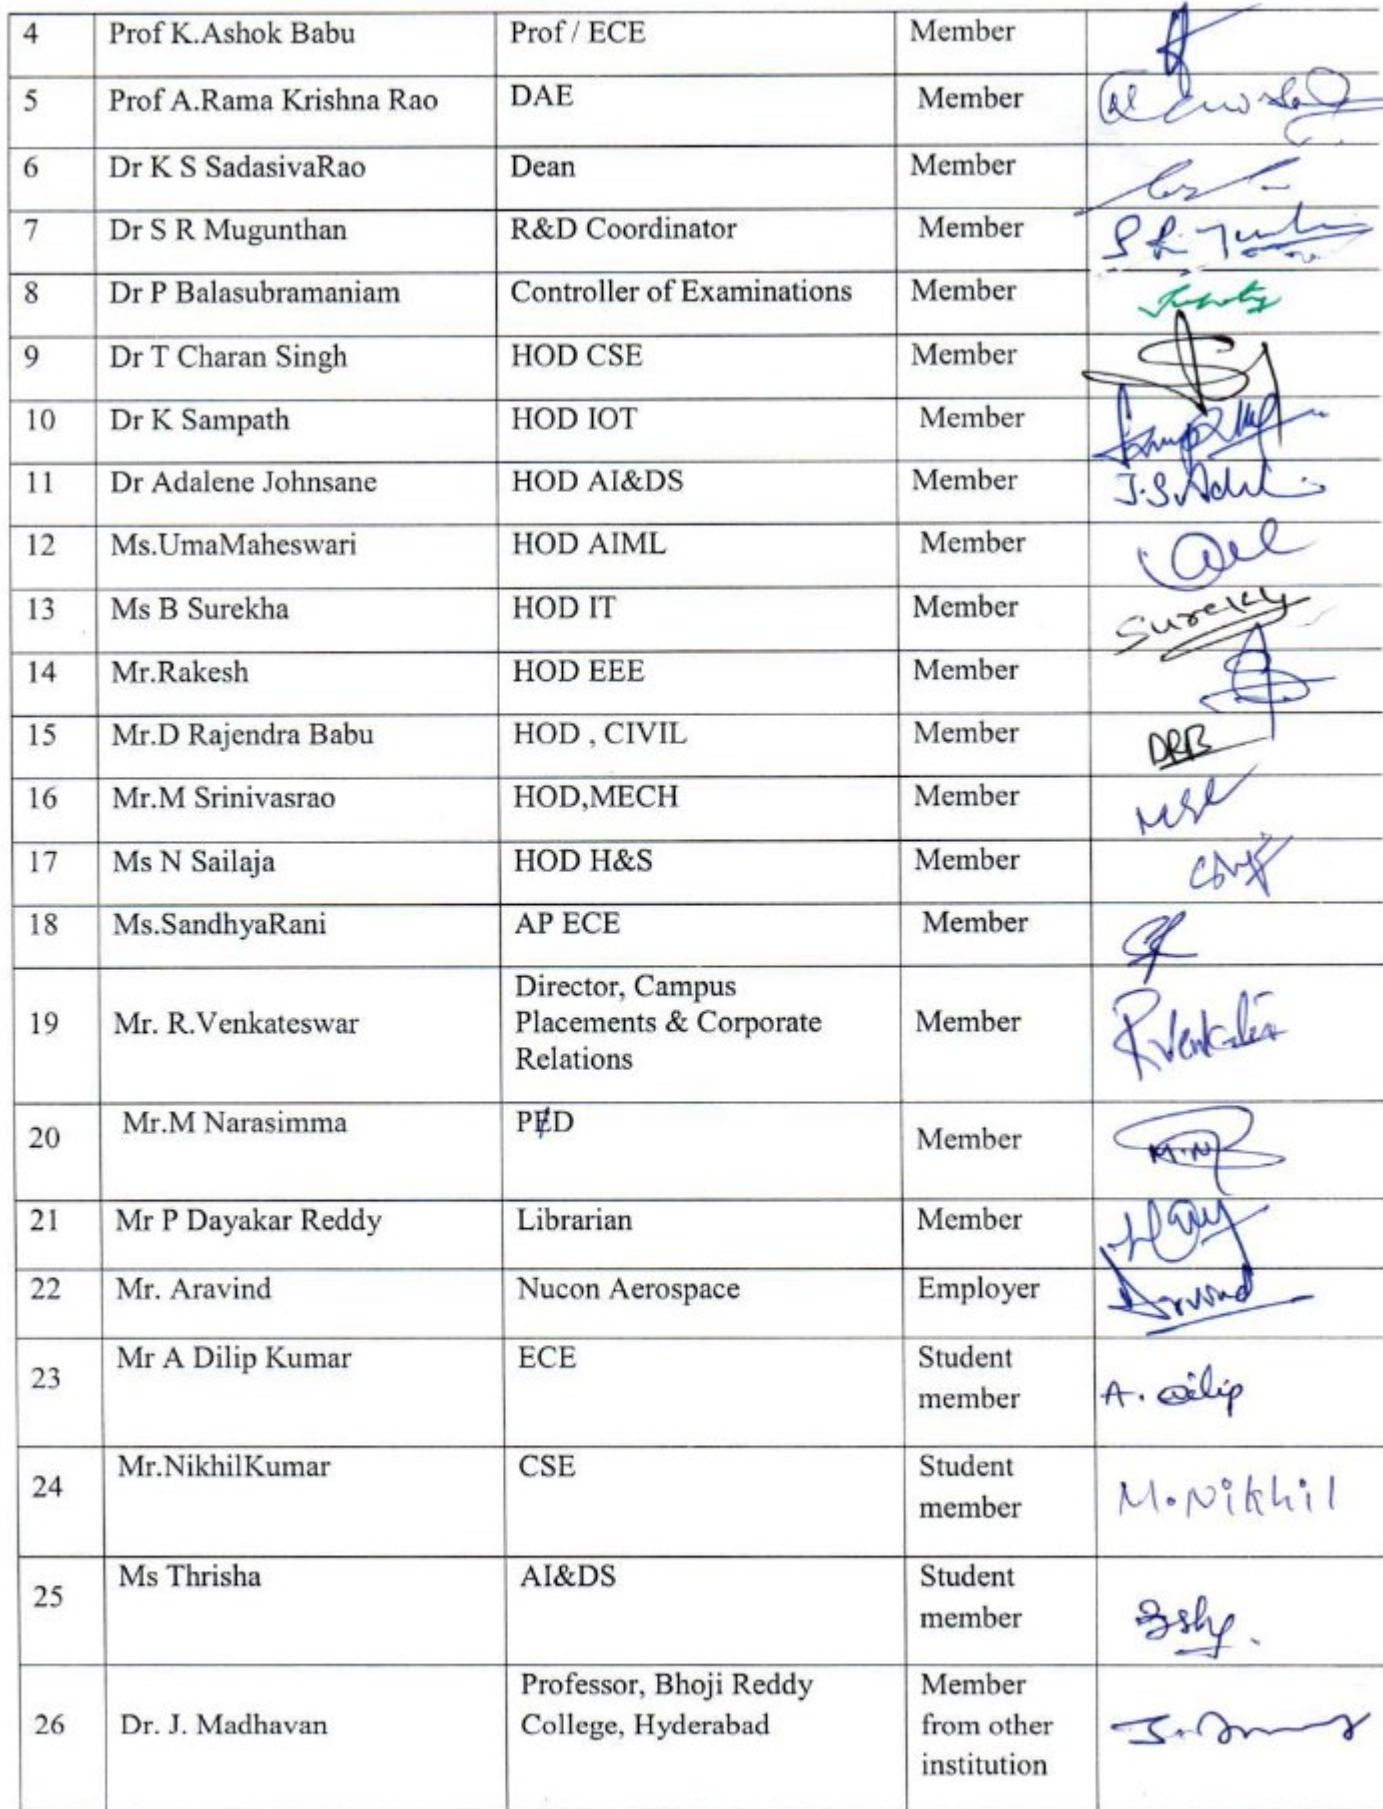 4 Prof K.Ashok Babu Prof / ECE Member
5 Prof A.Rama Krishna Rao DAE Member
6 Dr K S SadasivaRao Dean Member
7 Dr S R Mugunthan R&D Coordinator Member
8 Dr P Balasubramaniam Controller of Examinations Member
9 Dr T Charan Singh HOD CSE Member
10 Dr K Sampath HOD IOT Member
11 Dr Adalene Johnsane HOD AI&DS Member
12 Ms.UmaMaheswari HOD AIML Member
13 Ms B Surekha HOD IT Member
14 Mr.Rakesh HOD EEE Member
15 Mr.D Rajendra Babu HOD , CIVIL Member DRB
16 Mr.M Srinivasrao HOD,MECH Member
17 Ms N Sailaja HOD H&S Member
18 Ms.SandhyaRani AP ECE Member
Director, Campus
19 Mr. R.Venkateswar Placements & Corporate Member
Relations
20 Mr.M Narasimma PED Member
21 Mr P Dayakar Reddy Librarian Member
22 Mr. Aravind Nucon Aerospace Employer Arvind
23 Mr A Dilip Kumar ECE Student
member A. Dilip
24 Mr.NikhilKumar CSE Student
member M. Nikhil
25 Ms Thrisha AI&DS Student
member
Professor, Bhoji Reddy Member
26 Dr. J. Madhavan College, Hyderabad from other
institution